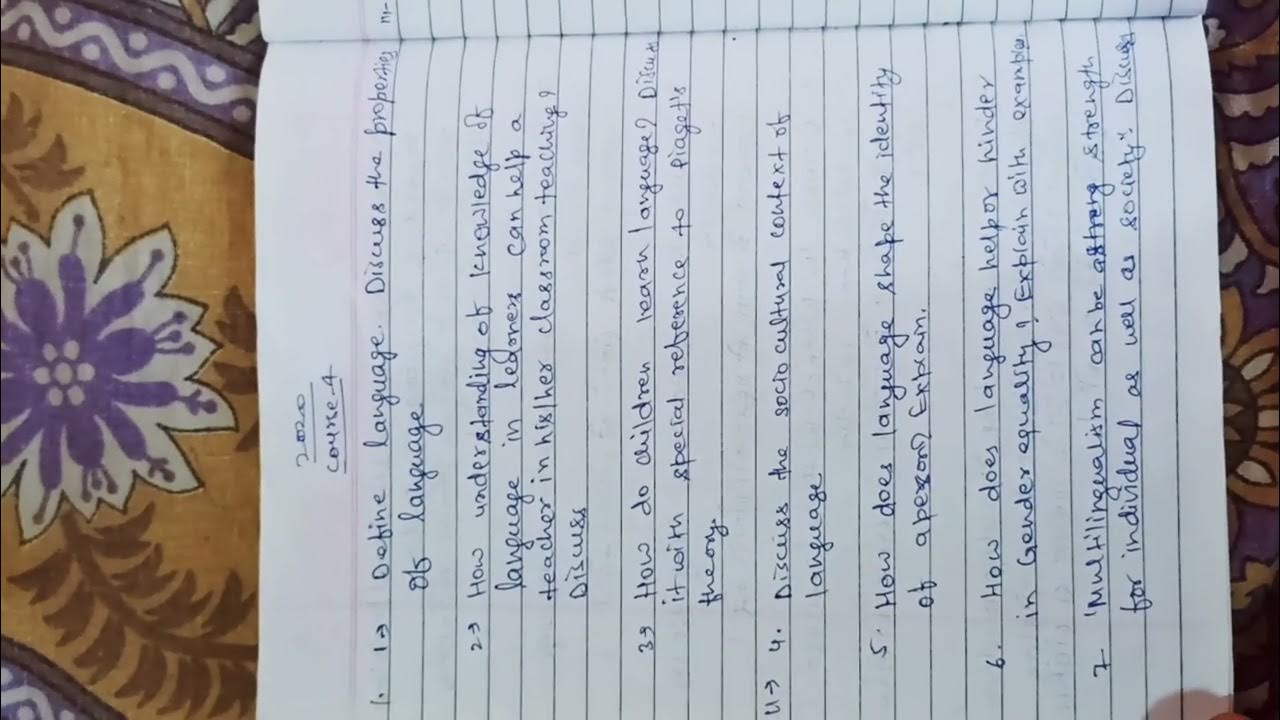 2020
Course-4
1. 1→ Define language. Discuss the properties
of language.
2→ How understanding of knowledge of
language in learners can help a
teacher in his/her classroom teaching?
Discuss
3→ How do children learn language? Discuss
it with special reference to Piaget's
theory.
4. Discuss the socio cultural context of
language
5. How does language shape the identity
of a person? Explain.
6. How does language help or hinder
in Gender equality? Explain with examples.
7 "Multilingualism can be strength
for individual as well as society". Discuss